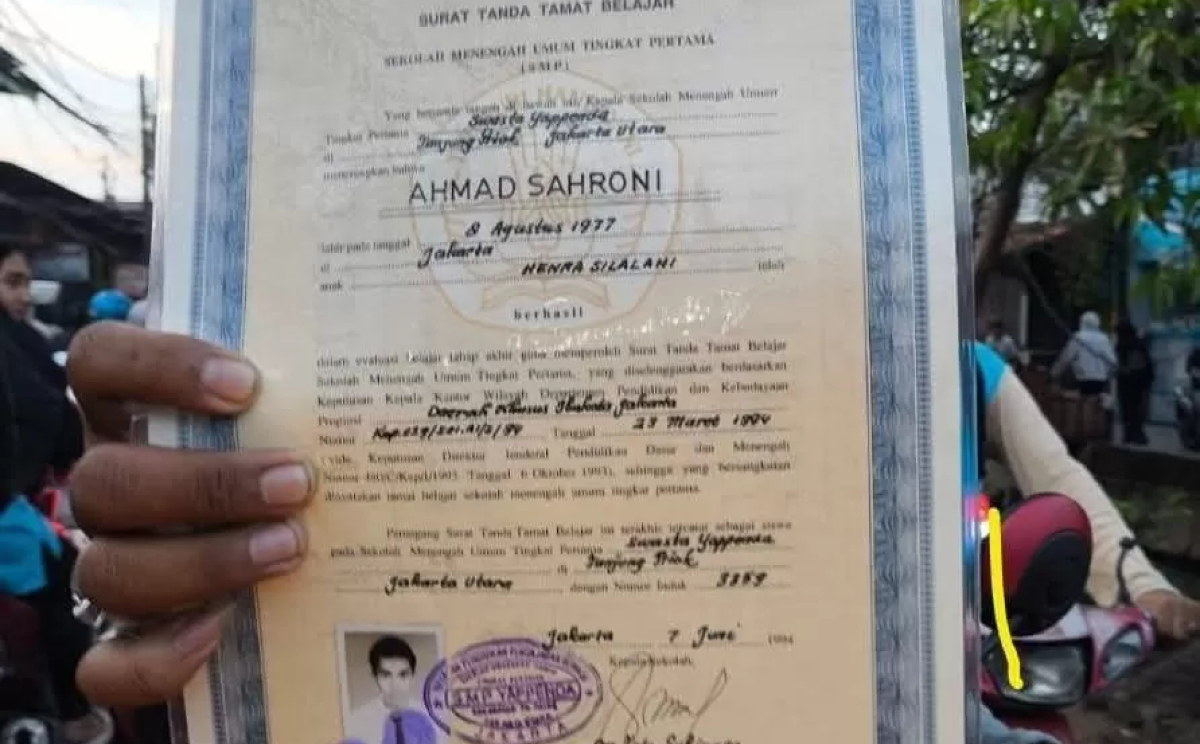 SURAT TANDA TAMAT BELAJAR
SEKOLAH MENENGAH UMUM TINGKAT PERTAMA
( SMP )
Yang bertanda tangan di bawah ini, Kepala Sekolah Menengah Umum
Tingkat Pertama Swasta Yappenda
di Tanjung Priok Jakarta Utara
menerangkan bahwa
AHMAD SAHRONI
lahir pada tanggal 8 Agustus 1977
di Jakarta
anak HENRA SILALAHI telah
berhasil
dalam evaluasi belajar tahap akhir guna memperoleh Surat Tanda Tamat Belajar
Sekolah Menengah Umum Tingkat Pertama, yang diselenggarakan berdasarkan
Keputusan Kepala Kantor Wilayah Departemen Pendidikan dan Kebudayaan
Propinsi Daerah Khusus Ibukota Jakarta
Nomor Tanggal 23 Maret 1994
(vide, Keputusan Direktur Jenderal Pendidikan Dasar dan Menengah
Nomor Tanggal 6 Oktober 1993), sehingga yang bersangkutan
dinyatakan tamat belajar sekolah menengah umum tingkat pertama.
Pemegang Surat Tanda Tamat Belajar ini terakhir tercatat sebagai siswa
pada Sekolah Menengah Umum Tingkat Pertama Swasta Yappenda
di Tanjung Priok
Jakarta Utara, dengan Nomor Induk 3359
Jakarta 7 Juni 1994
Kepala Sekolah,
SMP YAPPENDA
JAKARTA UTARA
JAKARTA